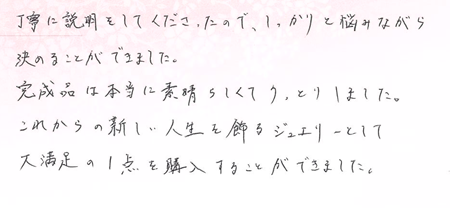 丁寧に説明をしてくださったので、しっかりと悩みながら
決めることができました。
完成品は本当に素晴らしくてうっとりしました。
これからの新しい人生を飾るジュエリーとして
大満足の1点を購入することができました。